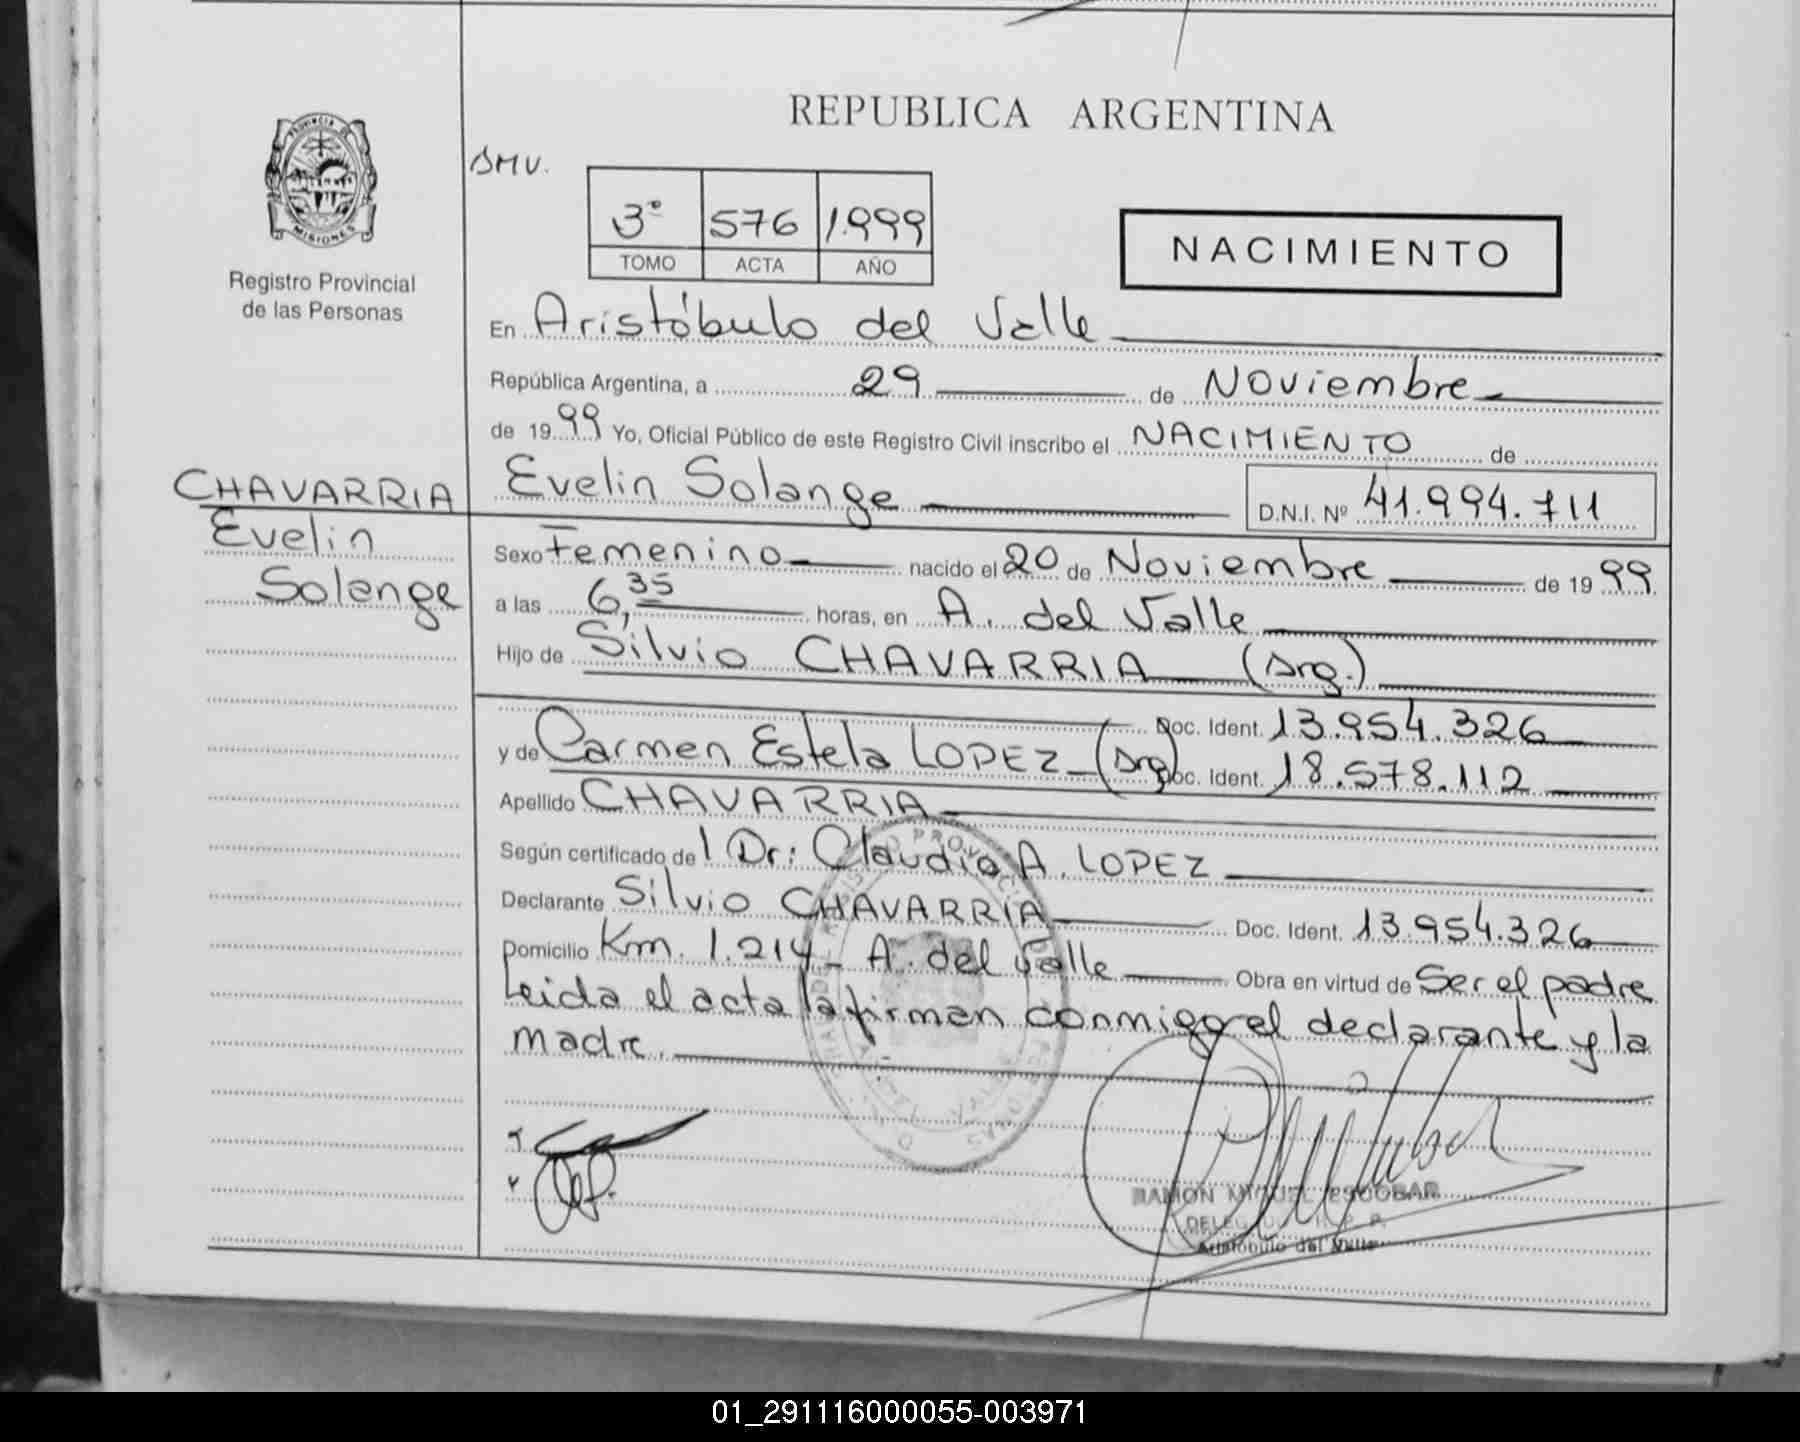 REPUBLICA ARGENTINA
PROVINCIA DE
MISIONES
Registro Provincial
de las Personas
3º 576 1.999
TOMO ACTA AÑO
NACIMIENTO
En Aristóbulo del Valle
República Argentina, a 29 de Noviembre
de 1999 Yo, Oficial Público de este Registro Civil inscribo el NACIMIENTO de
CHAVARRIA
Evelin
Solange
Evelin Solange D.N.I. Nº 41.994.711
Sexo Femenino nacido el 20 de Noviembre de 1999
a las 6,35 horas, en A. del Valle
Hijo de Silvio CHAVARRIA (Arg.)
Doc. Ident. 13.954.326
y de Carmen Estela LOPEZ (Arg) Doc. Ident. 18.578.112
Apellido CHAVARRIA
Según certificado de l Dr: Claudio A. LOPEZ
Declarante Silvio CHAVARRIA Doc. Ident. 13.954.326
Domicilio Km. 1.214 - A. del Valle Obra en virtud de Ser el padre
Leida el acta la firman conmigo el declarante y la
madre.
RAMON MIGUEL ESCOBAR
Aristóbulo del Valle
01_291116000055-003971